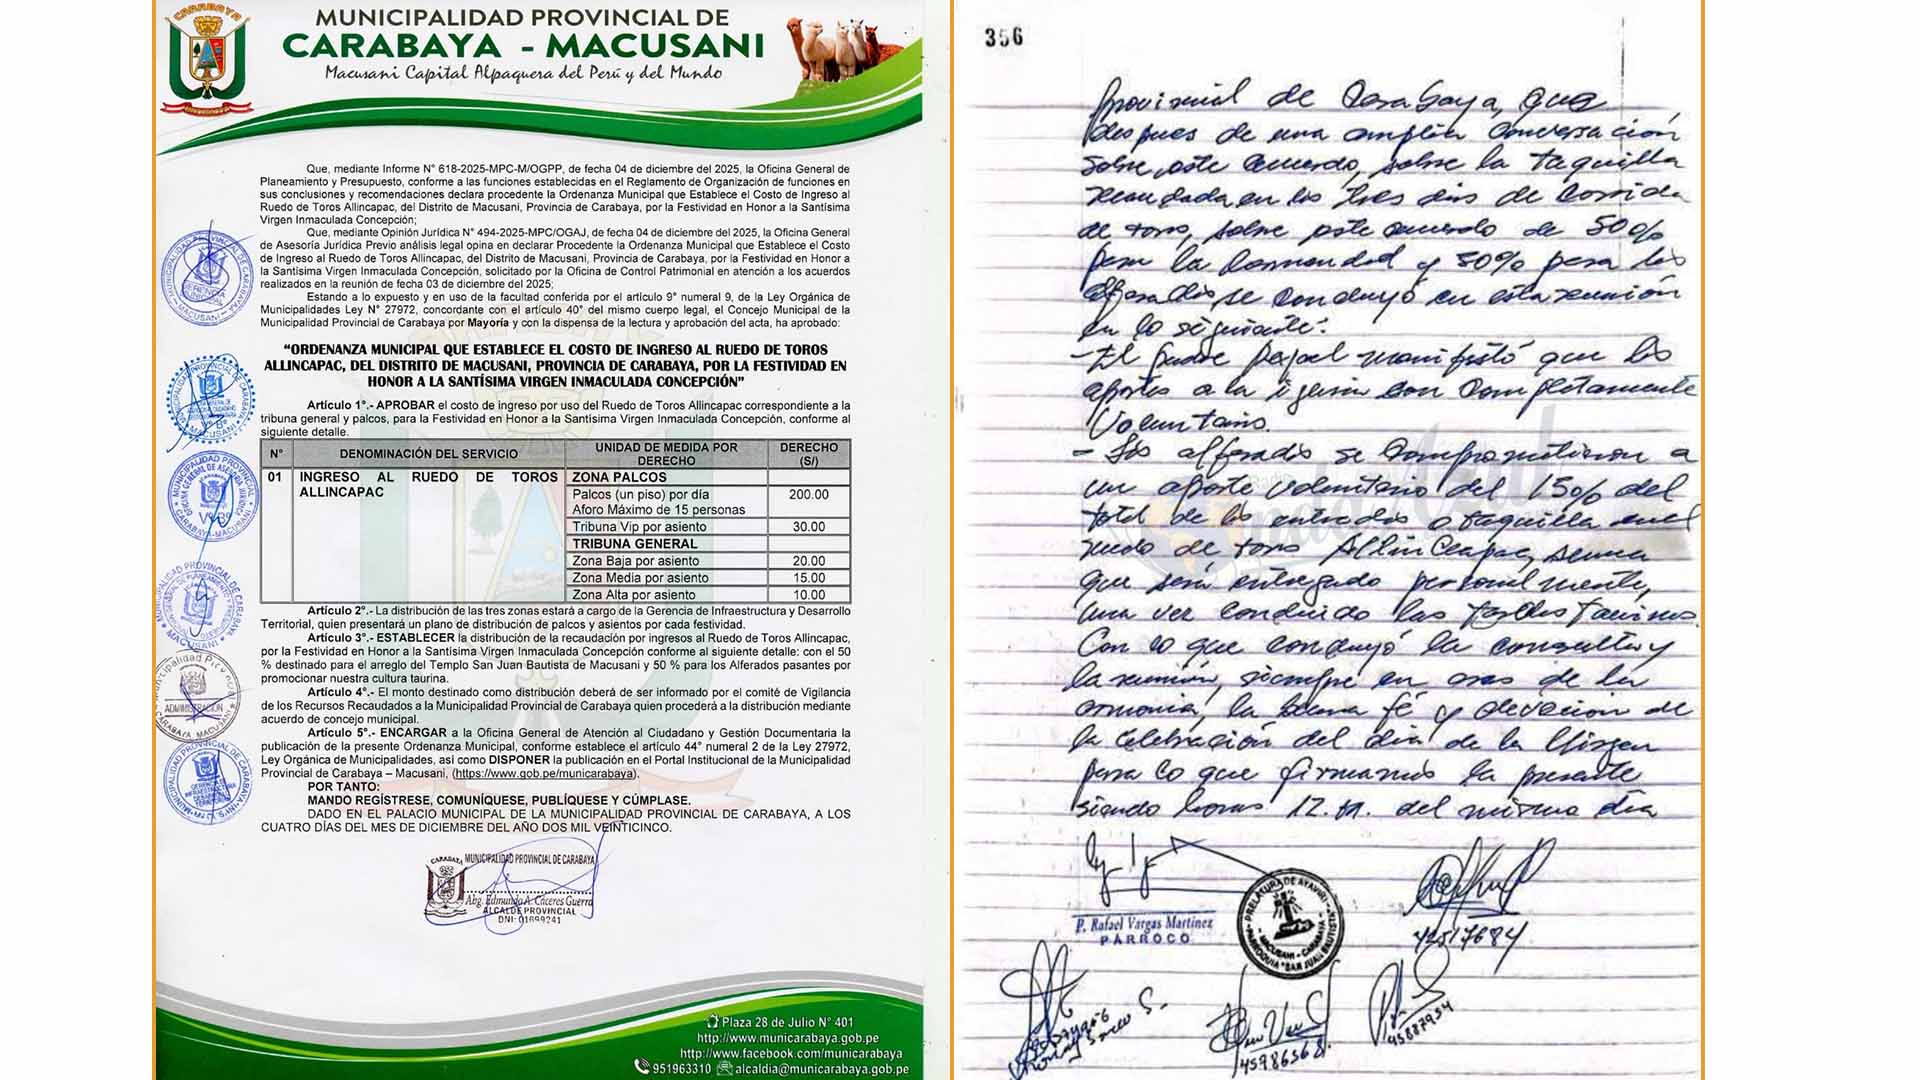 CARABAYA
MUNICIPALIDAD PROVINCIAL DE
CARABAYA - MACUSANI
Macusani Capital Alpaquera del Perú y del Mundo
Que, mediante Informe N° 618-2025-MPC-M/OGPP, de fecha 04 de diciembre del 2025, la Oficina General de
Planeamiento y Presupuesto, conforme a las funciones establecidas en el Reglamento de Organización de funciones en
sus conclusiones y recomendaciones declara procedente la Ordenanza Municipal que Establece el Costo de Ingreso al
Ruedo de Toros Allincapac, del Distrito de Macusani, Provincia de Carabaya, por la Festividad en Honor a la Santísima
Virgen Inmaculada Concepción;
Que, mediante Opinión Jurídica N° 494-2025-MPC/OGAJ, de fecha 04 de diciembre del 2025, la Oficina General
de Asesoría Jurídica Previo análisis legal opina en declarar Procedente la Ordenanza Municipal que Establece el Costo
de Ingreso al Ruedo de Toros Allincapac, del Distrito de Macusani, Provincia de Carabaya, por la Festividad en Honor a
la Santísima Virgen Inmaculada Concepción, solicitado por la Oficina de Control Patrimonial en atención a los acuerdos
realizados en la reunión de fecha 03 de diciembre del 2025;
Estando a lo expuesto y en uso de la facultad conferida por el artículo 9° numeral 9, de la Ley Orgánica de
Municipalidades Ley N° 27972, concordante con el artículo 40° del mismo cuerpo legal, el Concejo Municipal de la
Municipalidad Provincial de Carabaya por Mayoría y con la dispensa de la lectura y aprobación del acta, ha aprobado:
“ORDENANZA MUNICIPAL QUE ESTABLECE EL COSTO DE INGRESO AL RUEDO DE TOROS
ALLINCAPAC, DEL DISTRITO DE MACUSANI, PROVINCIA DE CARABAYA, POR LA FESTIVIDAD EN
HONOR A LA SANTÍSIMA VIRGEN INMACULADA CONCEPCIÓN”
Artículo 1°.- APROBAR el costo de ingreso por uso del Ruedo de Toros Allincapac correspondiente a la
tribuna general y palcos, para la Festividad en Honor a la Santísima Virgen Inmaculada Concepción, conforme al
siguiente detalle.
N° DENOMINACIÓN DEL SERVICIO UNIDAD DE MEDIDA POR DERECHO DERECHO (S/)
01 INGRESO AL RUEDO DE TOROS ALLINCAPAC ZONA PALCOS
Palcos (un piso) por día 200.00
Aforo Máximo de 15 personas
Tribuna Vip por asiento 30.00
TRIBUNA GENERAL
Zona Baja por asiento 20.00
Zona Media por asiento 15.00
Zona Alta por asiento 10.00
Artículo 2°.- La distribución de las tres zonas estará a cargo de la Gerencia de Infraestructura y Desarrollo
Territorial, quien presentará un plano de distribución de palcos y asientos por cada festividad.
Artículo 3°.- ESTABLECER la distribución de la recaudación por ingresos al Ruedo de Toros Allincapac,
por la Festividad en Honor a la Santísima Virgen Inmaculada Concepción conforme al siguiente detalle: con el 50
% destinado para el arreglo del Templo San Juan Bautista de Macusani y 50 % para los Alferados pasantes por
promocionar nuestra cultura taurina.
Artículo 4°.- El monto destinado como distribución deberá de ser informado por el comité de Vigilancia
de los Recursos Recaudados a la Municipalidad Provincial de Carabaya quien procederá a la distribución mediante
acuerdo de concejo municipal.
Artículo 5°.- ENCARGAR a la Oficina General de Atención al Ciudadano y Gestión Documentaria la
publicación de la presente Ordenanza Municipal, conforme establece el artículo 44° numeral 2 de la Ley 27972,
Ley Orgánica de Municipalidades, así como DISPONER la publicación en el Portal Institucional de la Municipalidad
Provincial de Carabaya – Macusani, (https://www.gob.pe/municarabaya).
POR TANTO:
MANDO REGÍSTRESE, COMUNÍQUESE, PUBLÍQUESE Y CÚMPLASE.
DADO EN EL PALACIO MUNICIPAL DE LA MUNICIPALIDAD PROVINCIAL DE CARABAYA, A LOS
CUATRO DÍAS DEL MES DE DICIEMBRE DEL AÑO DOS MIL VEINTICINCO.
MUNICIPALIDAD PROVINCIAL DE CARABAYA
Abg. Edmundo A. Cáceres Guerra
ALCALDE PROVINCIAL
DNI: 01699241
Plaza 28 de Julio N° 401
http://www.municarabaya.gob.pe
http://www.facebook.com/municarabaya
951963310 alcaldia@municarabaya.gob.pe
356
Provincial de Carabaya, que
despues de una amplia conversación
sobre este acuerdo, sobre la taquilla
recaudada en los tres dias de corrida
de toros, sobre este acuerdo de 50%
para la Comunidad y 50% para los
alferados, se concluyó en esta reunión
en lo siguiente:
- El padre Rafael manifestó que los
aportes a la iglesia son completamente
Voluntario.
- Los alferados se comprometieron a
un aporte voluntario del 15% del
total de las entradas o taquilla en el
ruedo de toros Allin Ccapac, suma
que será entregado personalmente,
una vez concluido las tardes taurinas.
Con lo que concluyó la consulta y
la reunión, siempre en aras de la
armonia, la buena fé y devoción de
la celebración del dia de la Virgen
para lo que firmamos la presente
siendo horas 12.m. del mismo dia
P. Rafael Vargas Martínez
PÁRROCO
PRELATURA DE AYAVIRI
MACUSANI - CARABAYA
PARROQUIA "SAN JUAN BAUTISTA"
42517684
45786568
45687954